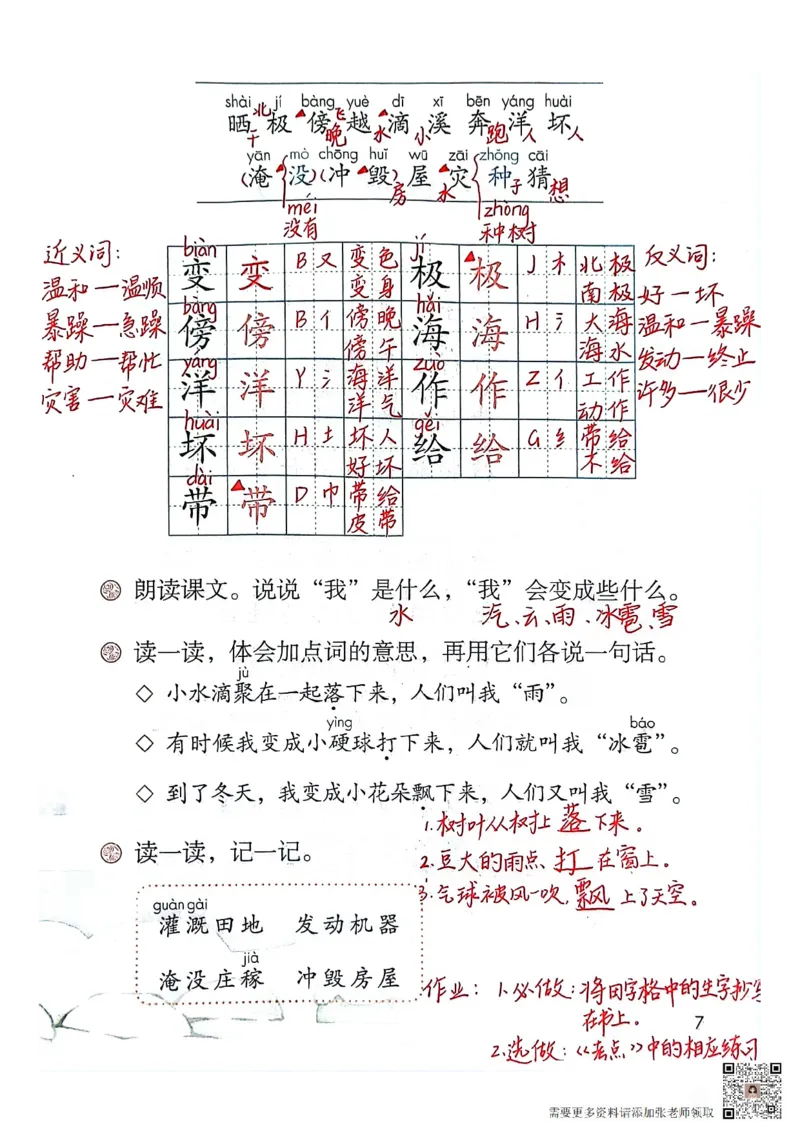 shài jí bàng yuè dī xī bēn yáng huài
晒干 极北 傍晚 越飞 滴水 溪小 奔跑 洋人 坏人
yān mò chōng huǐ wū zāi zhǒng cāi
(淹 没)(冲 毁) 屋房 灾水 种子 猜想
méi zhòng
没有 种树
近义词:
温和—温顺
暴躁—急躁
帮助—帮忙
灾害—灾难
反义词:
好—坏
温和—暴躁
发动—终止
许多—很少
biàn jí
变 变 B 又 变色 变身 极 极 J 木 北极 南极
bàng hǎi
傍 傍 B 亻 傍晚 傍午 海 海 H 氵 大海 海水
yáng zuò
洋 洋 Y 氵 海洋 洋气 作 作 Z 亻 工作 动作
huài gěi
坏 坏 H 土 坏人 好坏 给 给 G 纟 带给 不给
dài
带 带 D 巾 带给 皮带
朗读课文。说说“我”是什么,“我”会变成些什么。
水 汽、云、雨、冰雹、雪
读一读,体会加点词的意思,再用它们各说一句话。
jù
◇ 小水滴聚在一起落下来,人们叫我“雨”。
yìng báo
◇ 有时候我变成小硬球打下来,人们就叫我“冰雹”。
◇ 到了冬天,我变成小花朵飘下来,人们又叫我“雪”。
1.树叶从树上落下来。
读一读,记一记。
2.豆大的雨点打在窗上。
3.气球被风一吹,飘上了天空。
guàn gài
灌溉田地 发动机器
jià
淹没庄稼 冲毁房屋
作业: 1.必做:将田字格中的生字抄写
在书上。
7
2.选做:《点》中的相应练习
需要更多资料请添加张老师领取